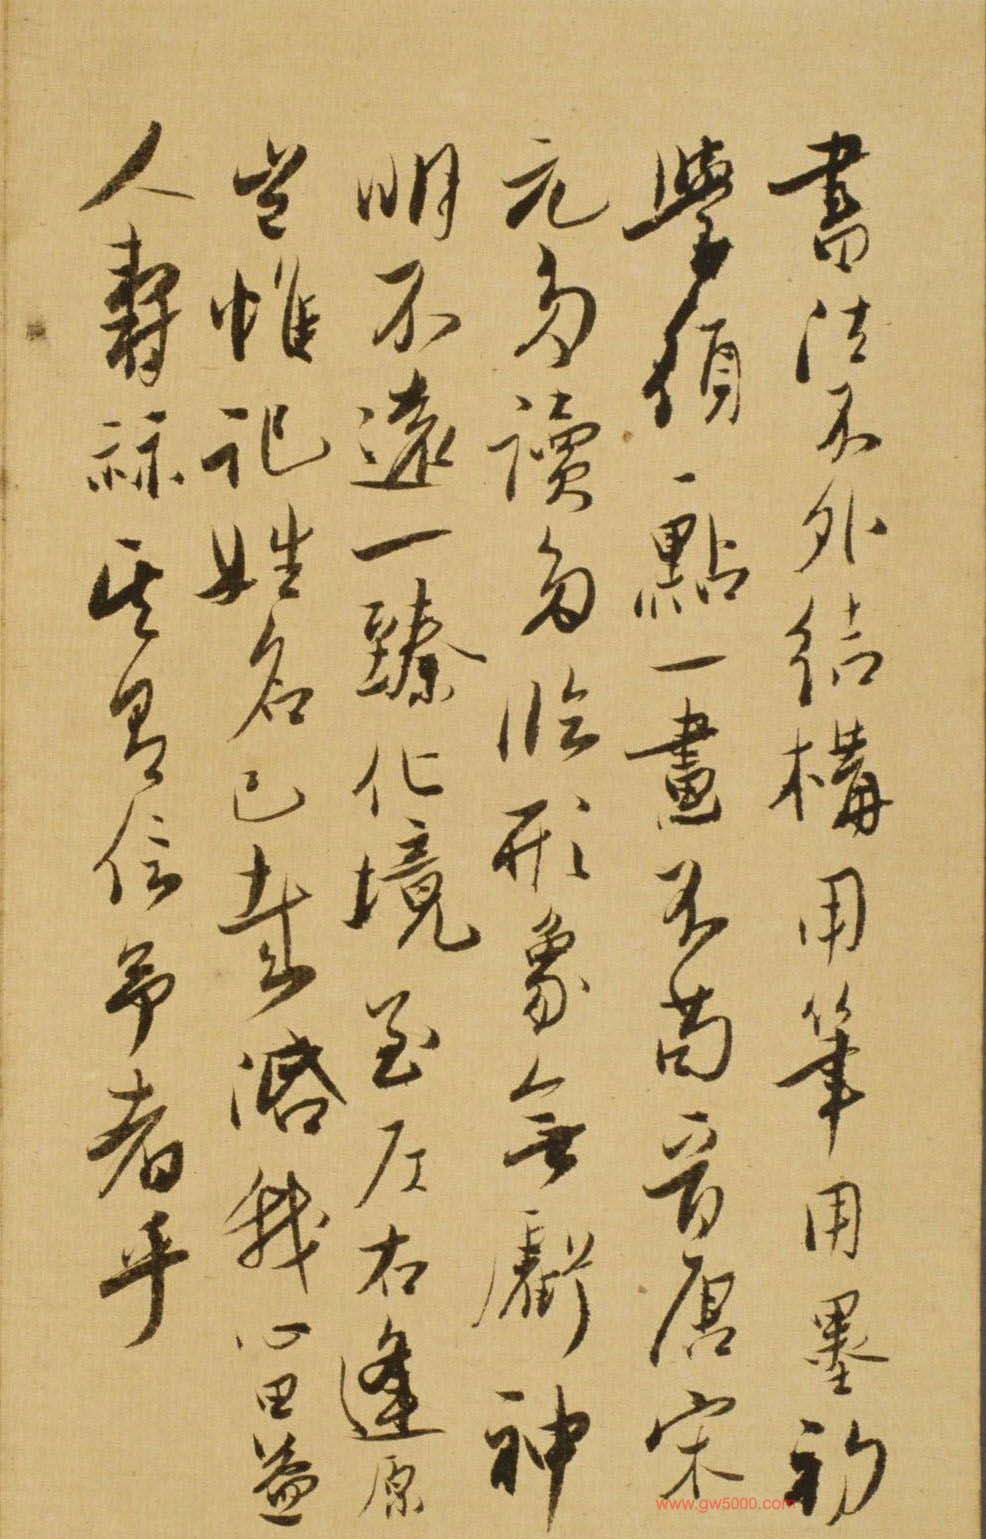 書法不外結構用筆用墨初
學須一點一畫不苟晉唐宋
元多讀多臨形象無虧神
明不遠一臻化境至左右逢原
豈惟記姓名已哉潛我心田益
人壽祿其有信予者乎
www.gw5000.com